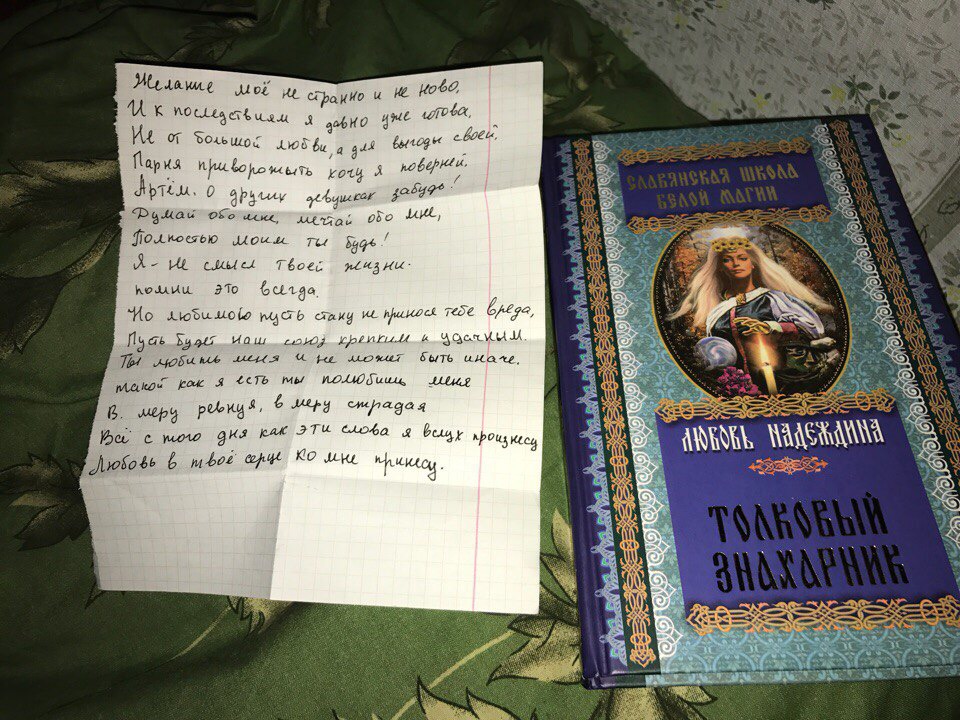 Желание моё не странно и не ново,
И к последствиям я давно уже готова,
Не от большой любви, а для выгоды своей,
Парня приворожыть хочу я поверней.
Артём. О других девушках забудь!
Думай обо мне, мечтай обо мне,
Полностью моим ты будь!
Я - не смысл твоей жизни.
помни это всегда.
Но любимою пусть стану не принося тебе вреда,
Пусть будет наш союз крепким и удачным.
Ты любишь меня и не может быть иначе.
такой как я есть ты полюбишь меня
В меру ревнуя, в меру страдая
Всё с того дня как эти слова я вслух произнесу
Любовь в твоё серце ко мне принесу.
СЛАВЯНСКАЯ ШКОЛА
БЕЛОЙ МАГИИ
ЛЮБОВЬ НАДЕЖДИНА
ТОЛКОВЫЙ
ЗНАХАРНИК